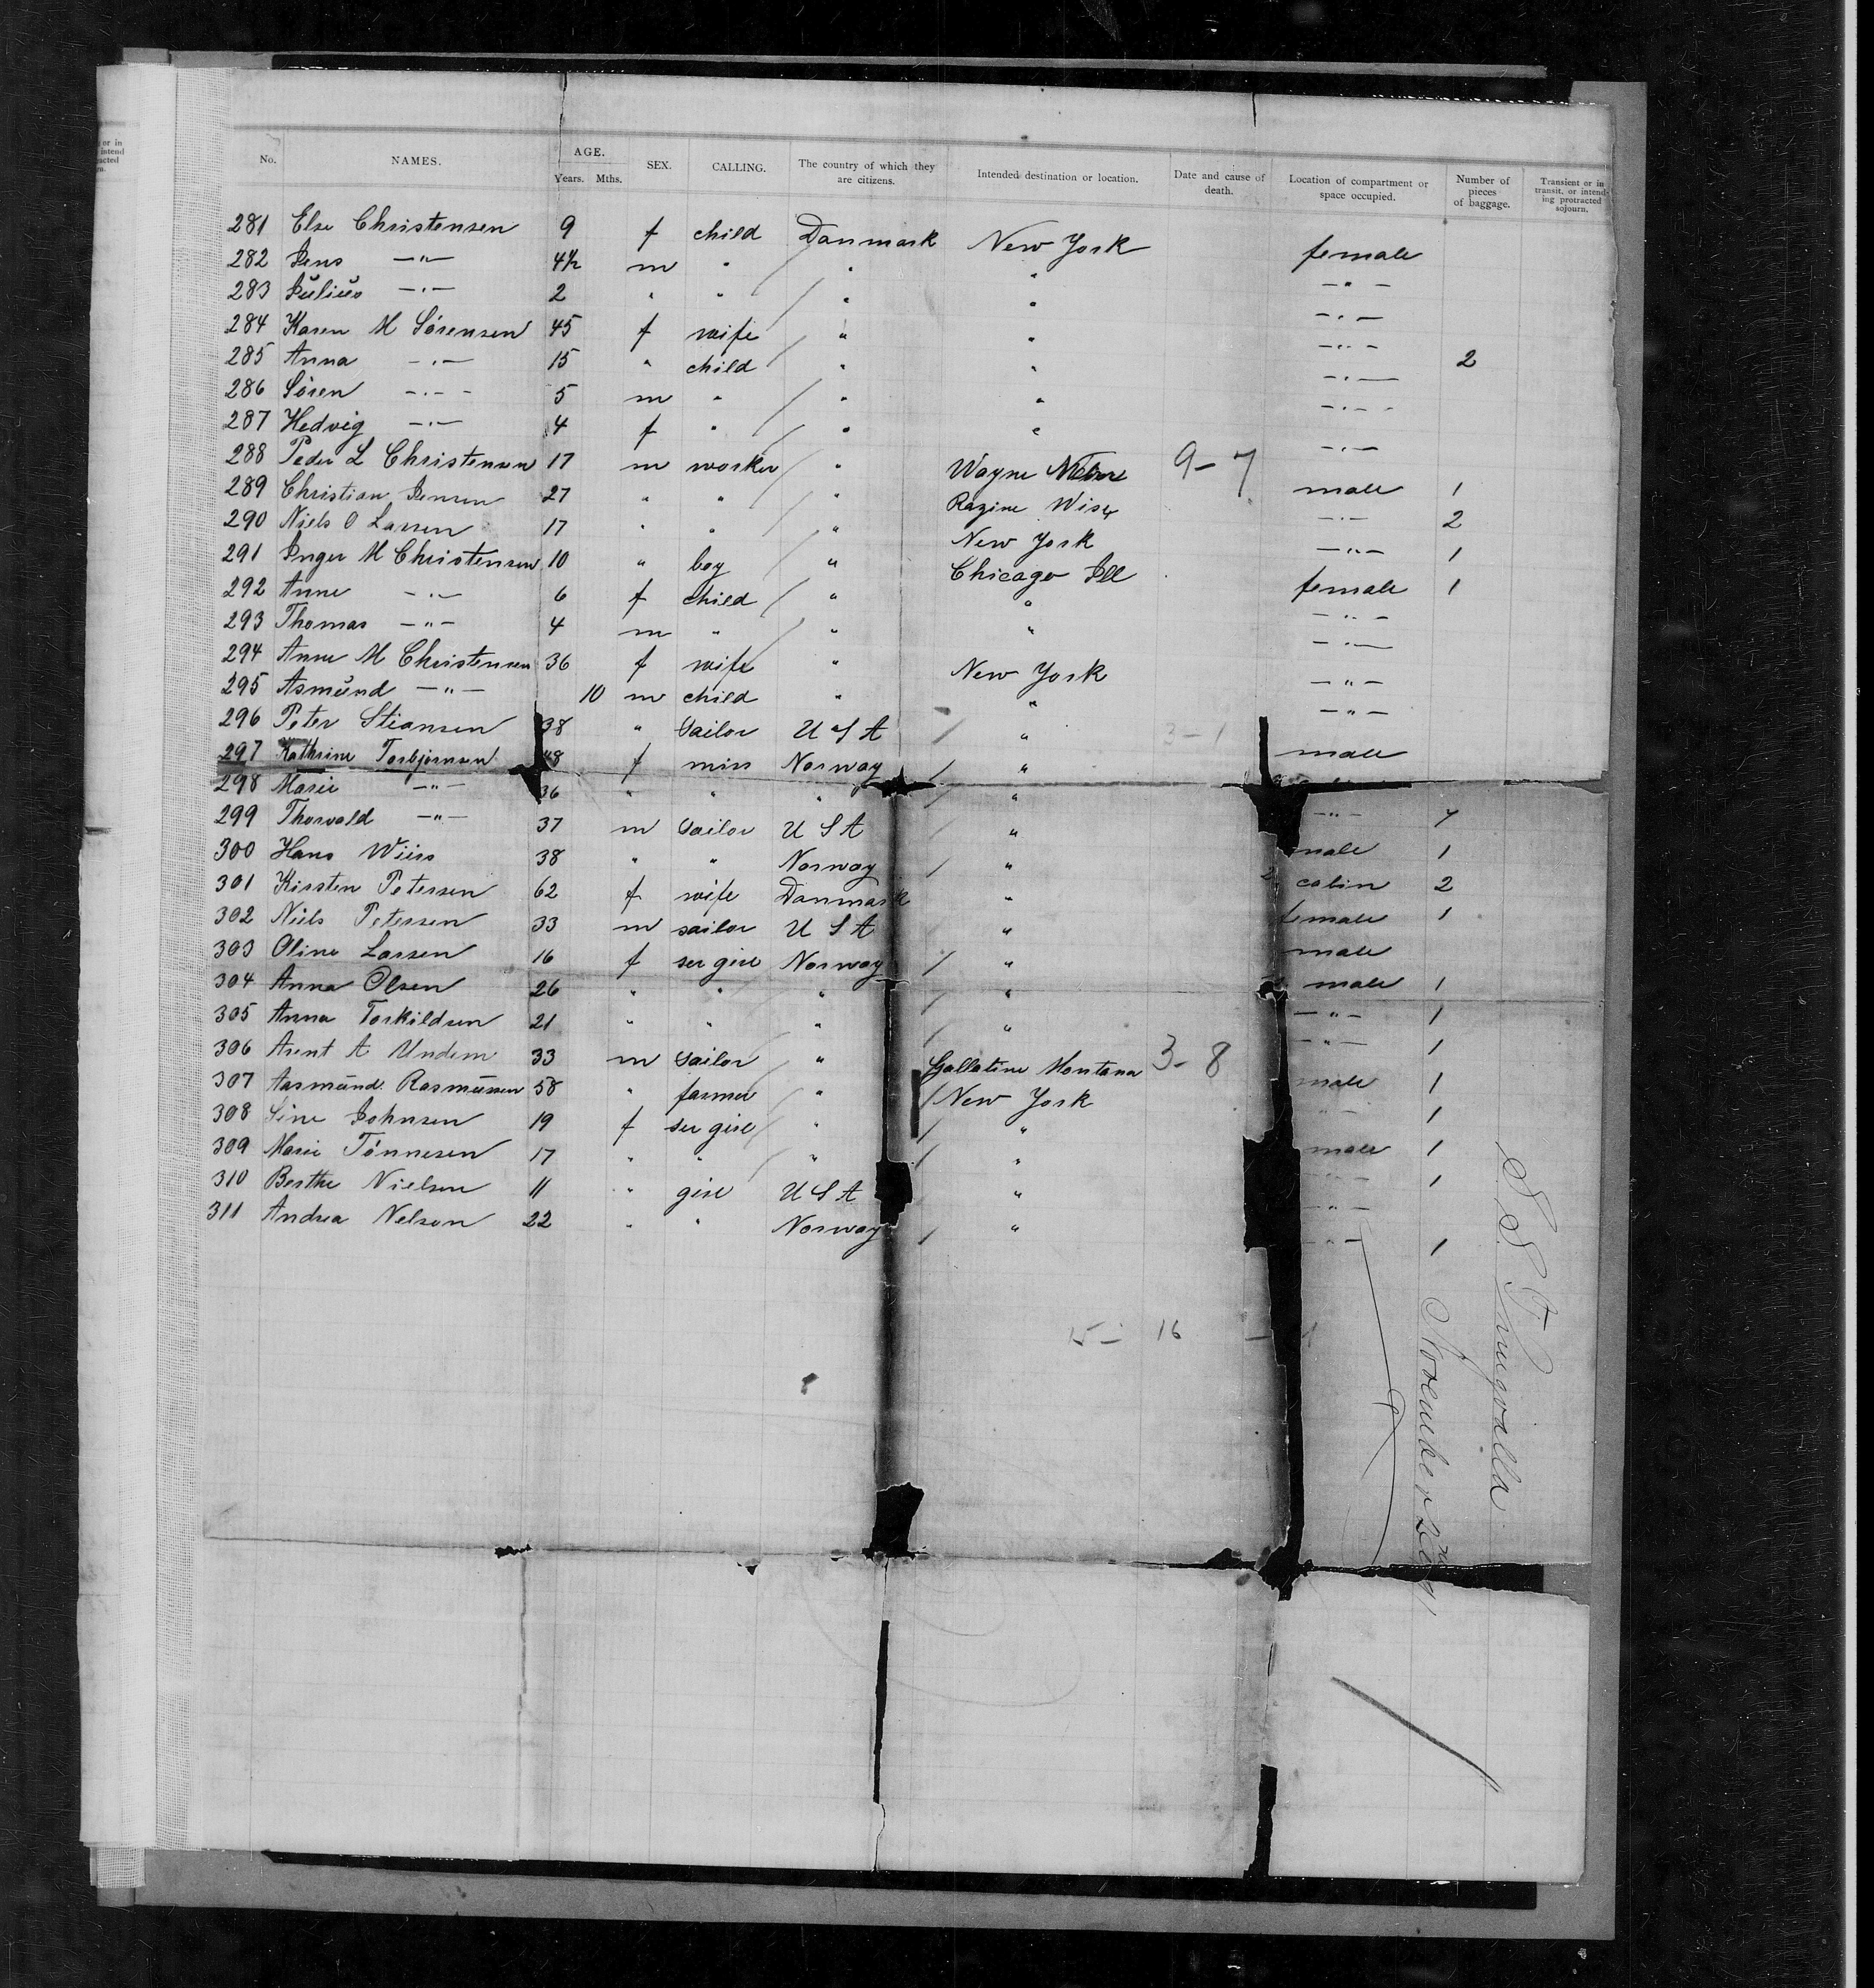 or in
intend
racted
n.
No. NAMES. AGE. Years. Mths. SEX. CALLING. The country of which they are citizens. Intended destination or location. Date and cause of death. Location of compartment or space occupied. Number of pieces of baggage. Transient or in transit, or intending protracted sojourn.
281 Else Christensen 9 f child Danmark New York female
282 Jens —"— 4½ m " / " " —"—
283 Julius —"— 2 " " / " " —"—
284 Karen M Sörensen 45 f wife " " —"—
285 Anna —"— 15 " child / " " —"— 2
286 Sören —"— 5 m " / " " —"—
287 Hedvig —"— 4 f " / " " —"—
288 Peder L Christensen 17 m worker / " Wayne 9-7 male 1
289 Christian Jensen 27 " " / " Razine Wis —"— 2
290 Niels O Larsen 17 " " / " New York —"— 1
291 Inger M Christensen 10 " boy / " Chicago Ill female 1
292 Anne —"— 6 f child / " " —"—
293 Thomas —"— 4 m " / " " —"—
294 Anne M Christensen 36 f wife " New York —"—
295 Asmund —"— 10 m child " " —"—
296 Peter Stiansen 38 " sailor U S A / " 3-1 male
297 Kathrine Torbjörnsen 48 f miss Norway / "
298 Marie —"— 36 " " " / " —"—
299 Thorvald —"— 37 m sailor U S A / " male 1
300 Hans 38 " " Norway / " 2 cabin 2
301 Kirsten Petersen 62 f wife Danmark " female 1
302 Niels Petersen 33 m sailor U S A " male
303 Oline Larsen 16 f ser girl Norway / " male 1
304 Anna Olsen 26 " " / " / " —"— 1
305 Anna Torkildsen 21 " " " / " —"— 1
306 Arent A Undem 33 m sailor / " Gallatine Montana 3-8 male 1
307 Aasmund Rasmussen 58 " farmer / " / New York —"— 1
308 Sine Johnsen 19 f ser girl / " / " male 1
309 Marie Tönnesen 17 " " / " / " —"— 1
310 Berthe Nielsen 11 " girl U S A " —"—
311 Andrea Nelson 22 " " Norway / " —"— 1
15 - 16 -
S S Thingvalla
November